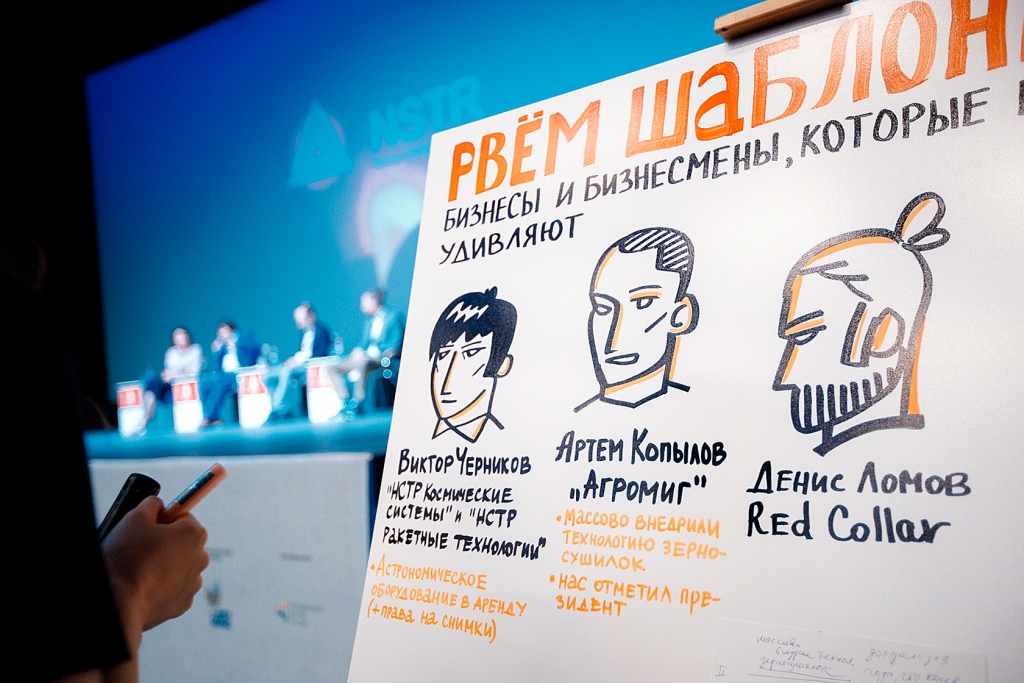 NSTR
РВЁМ ШАБЛОН
БИЗНЕСЫ И БИЗНЕСМЕНЫ, КОТОРЫЕ
УДИВЛЯЮТ
ВИКТОР ЧЕРНИКОВ
"НСТР КОСМИЧЕСКИЕ
СИСТЕМЫ" И "НСТР
РАКЕТНЫЕ ТЕХНОЛОГИИ"
• АСТРОНОМИЧЕСКОЕ
ОБОРУДОВАНИЕ В АРЕНДУ
(+ПРАВА НА СНИМКИ)
АРТЕМ КОПЫЛОВ
„АГРОМИГ"
• МАССОВО ВНЕДРИЛИ
ТЕХНОЛОГИЮ ЗЕРНО-
СУШИЛОК
• НАС ОТМЕТИЛ ПРЕ-
ЗИДЕНТ
ДЕНИС ЛОМОВ
Red Collar
массово
зерносушилок
II